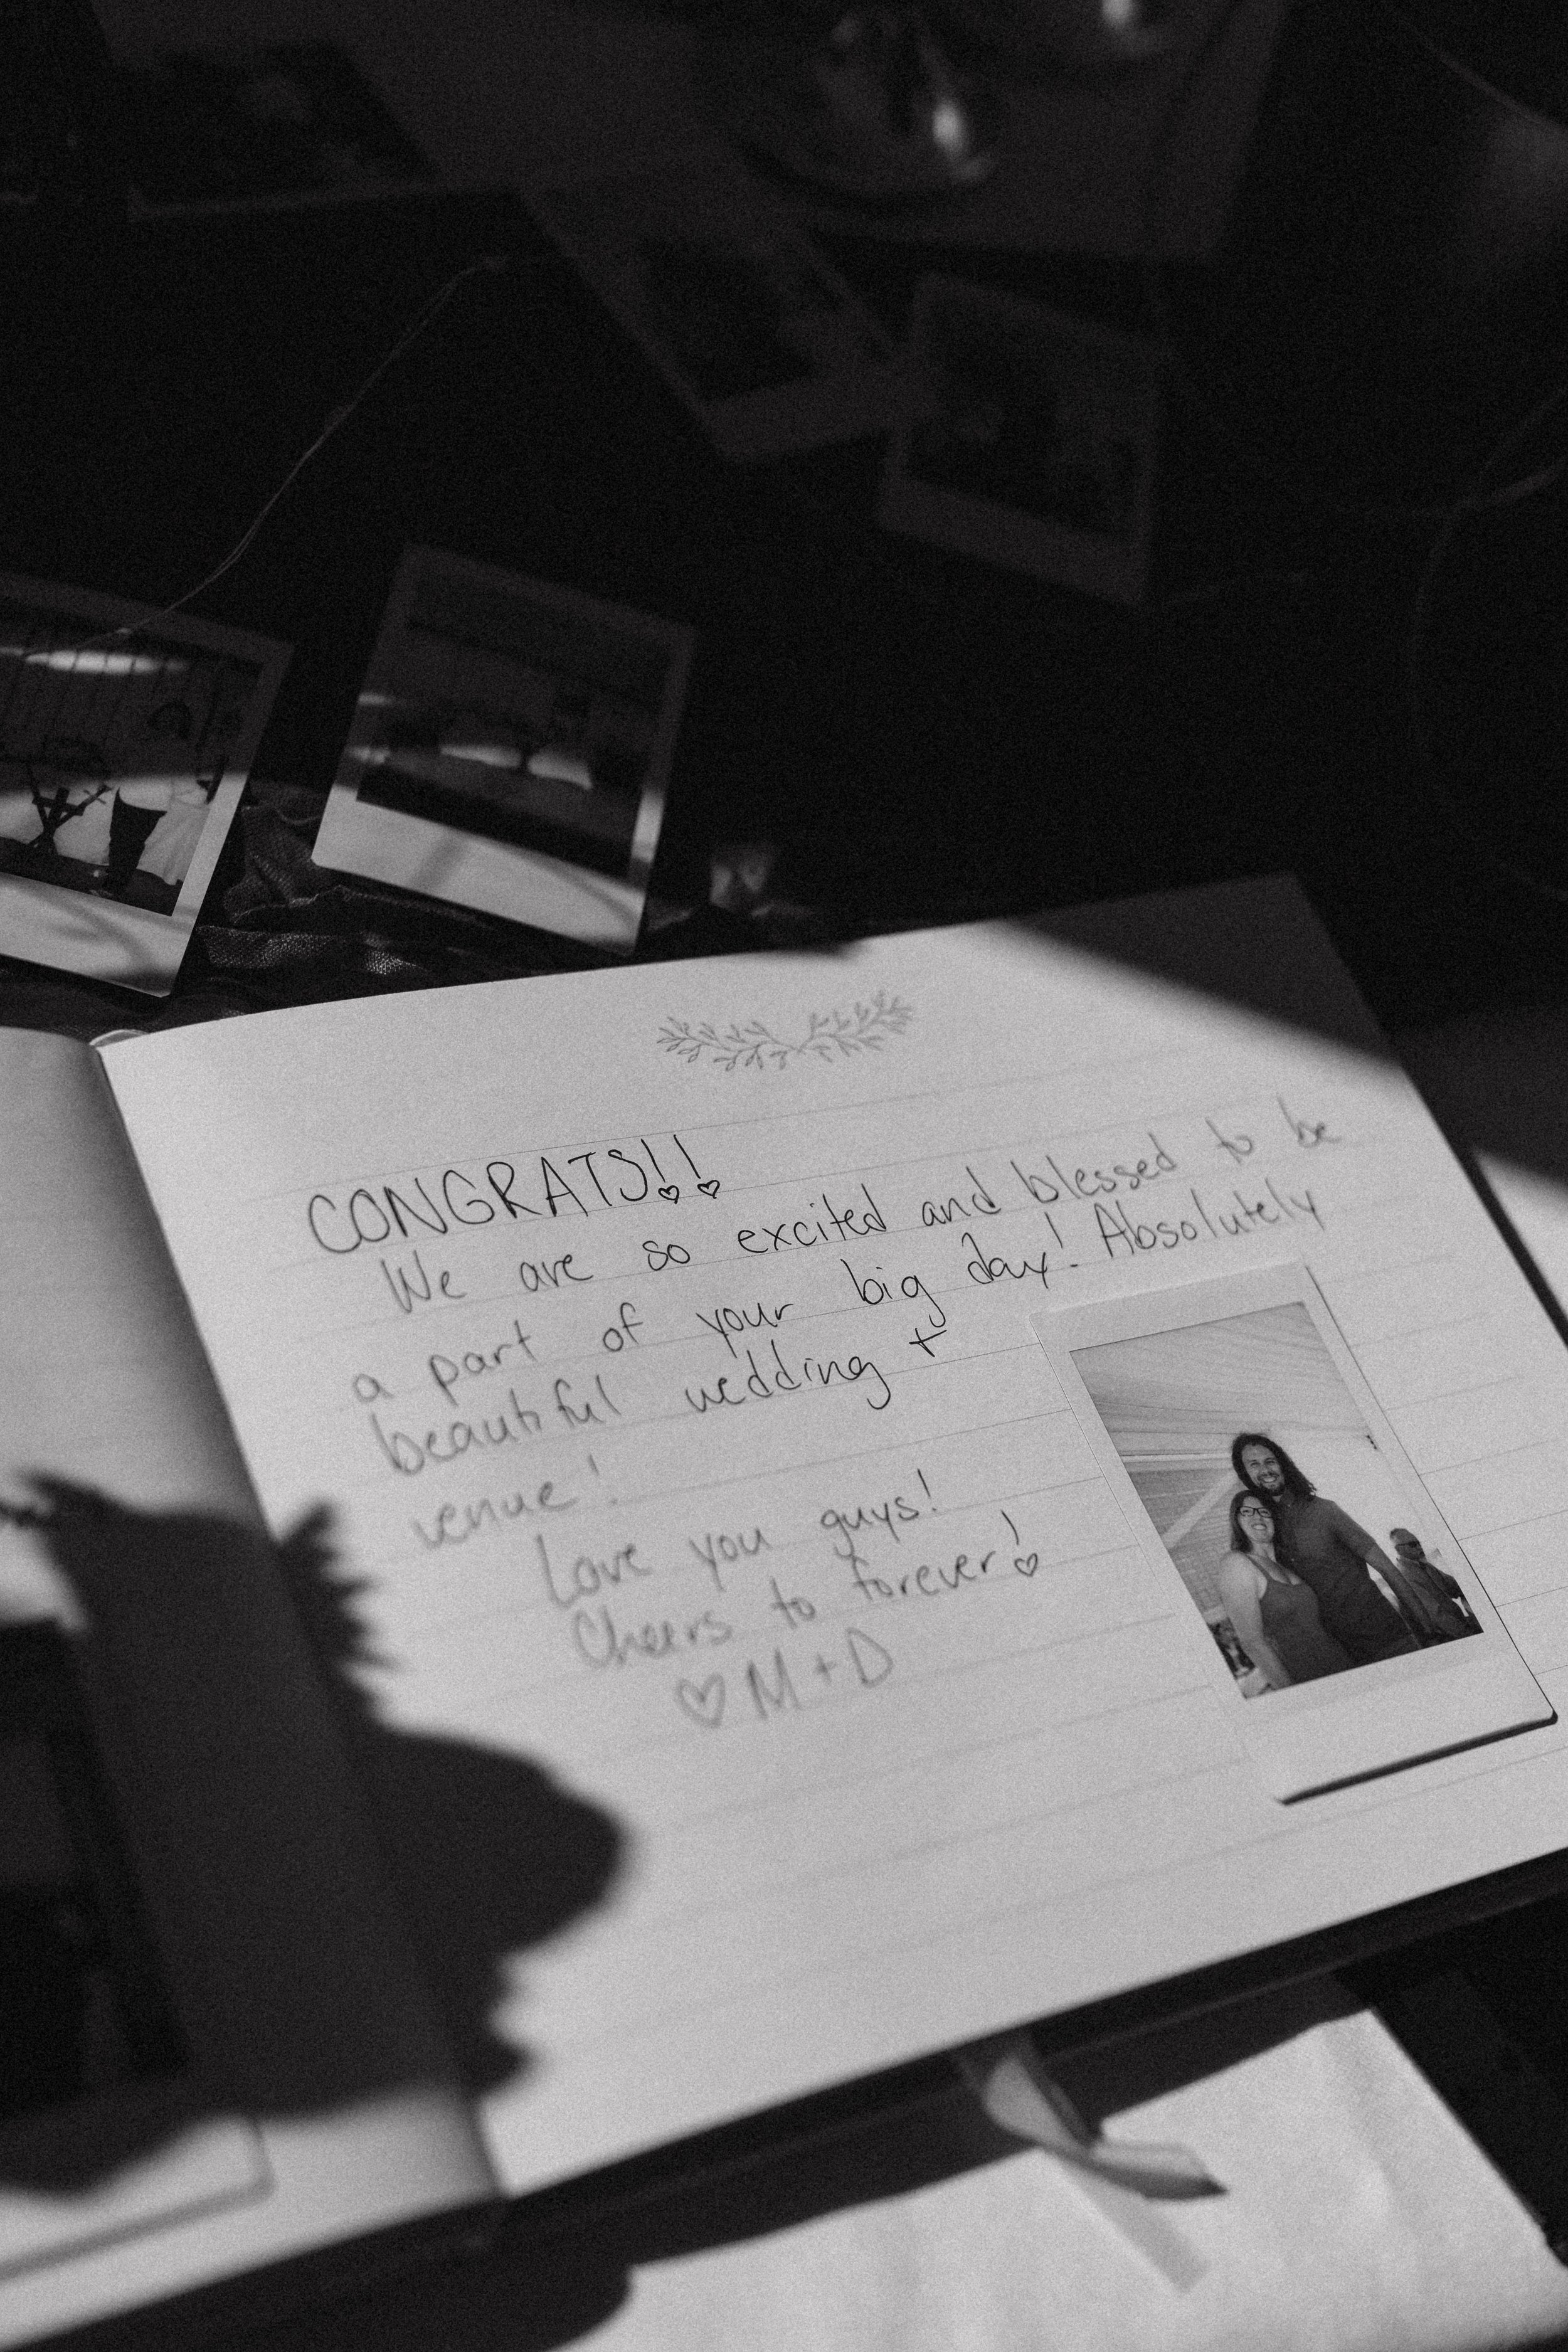 CONGRATS!!
We are so excited and blessed to be
a part of your big day! Absolutely
beautiful wedding +
venue!
Love you guys!
Cheers to forever!
♡ M + D